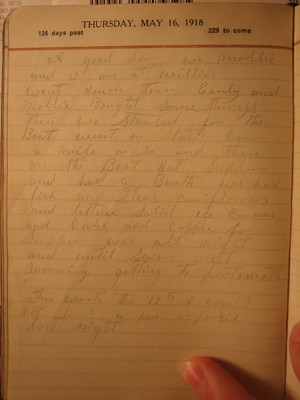 THURSDAY, MAY 16, 1918
136 days past 229 to come
A good day we Mollie
and I are at Willies
went down town Early and
Mollie Bought Some things
then we Started for the
Boat went on down
a mile or so and then
on the Boat Eat Supper
and had a Berth we had
fish and Steak
and lettuce Salid Ice Cream
and Cake and Coffee for
Supper was all night
and until Seven next
morning getting to
This wrote the 17th I could
not a pen or pencil
last night